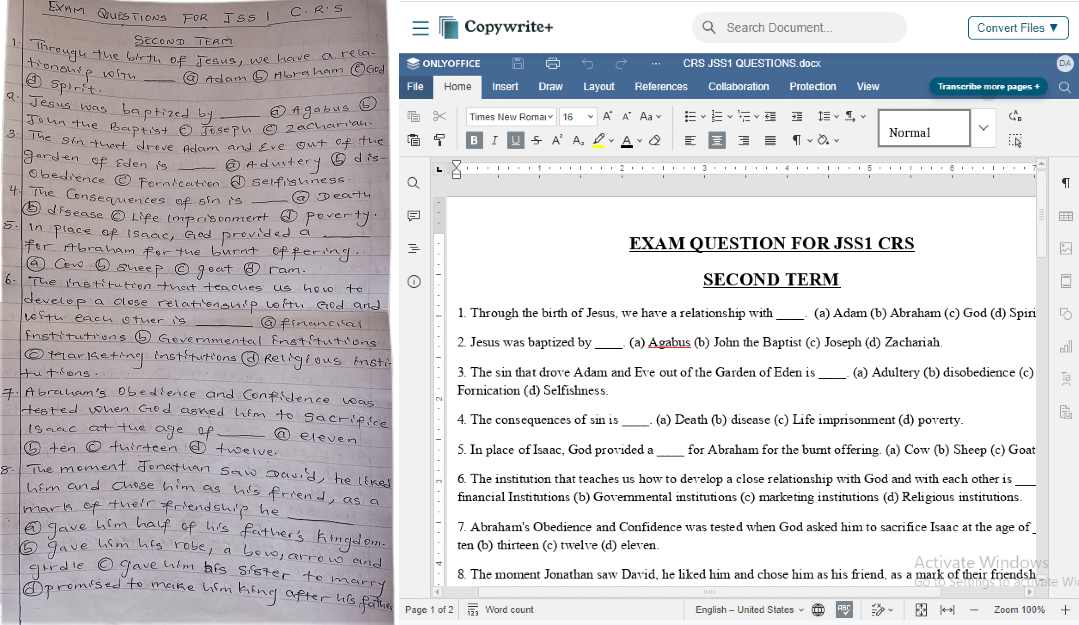 EXAM QUESTIONS FOR JSS 1 C.R.S
SECOND TERM
1. Through the birth of Jesus, we have a rela-
tionship with ____ (a) Adam (b) Abraham (c) God
(d) Spirit.
2. Jesus was baptized by ____ (a) Agabus (b)
John the Baptist (c) Joseph (c) Zachariah.
3. The sin that drove Adam and Eve out of the
garden of Eden is ____ (a) Adultery (b) dis-
obedience (c) Fornication (d) selfishness.
4. The Consequences of sin is ____ (a) Death
(b) disease (c) Life Imprisonment (d) poverty.
5. In place of Isaac, God provided a ____
for Abraham for the burnt offering.
(a) Cow (b) sheep (c) goat (d) ram.
6. The institution that teaches us how to
develop a close relationship with God and
with each other is ____ (a) financial
Institutions (b) Governmental institutions
(c) marketing institutions (d) Religious insti-
tutions.
7. Abraham's Obedience and Confidence was
tested when God asked him to sacrifice
Isaac at the age of ____ (a) eleven
(b) ten (c) thirteen (d) twelve.
8. The moment Jonathan saw David, he liked
him and chose him as his friend, as a
mark of their friendship he ____
(a) gave him half of his father's kingdom.
(b) gave him his robe, a bow, arrow and
girdle (c) gave him his sister to marry
(d) promised to make him king after his father
Copywrite+
Search Document...
Convert Files ▼
ONLYOFFICE
CRS JSS1 QUESTIONS.docx
DA
File Home Insert Draw Layout References Collaboration Protection View
Transcribe more pages +
Times New Roman 16
Normal
EXAM QUESTION FOR JSS1 CRS
SECOND TERM
1. Through the birth of Jesus, we have a relationship with ____. (a) Adam (b) Abraham (c) God (d) Spiri
2. Jesus was baptized by ____. (a) Agabus (b) John the Baptist (c) Joseph (d) Zachariah.
3. The sin that drove Adam and Eve out of the Garden of Eden is ____. (a) Adultery (b) disobedience (c)
Fornication (d) Selfishness.
4. The consequences of sin is ____. (a) Death (b) disease (c) Life imprisonment (d) poverty.
5. In place of Isaac, God provided a ____ for Abraham for the burnt offering. (a) Cow (b) Sheep (c) Goat
6. The institution that teaches us how to develop a close relationship with God and with each other is ___
financial Institutions (b) Governmental institutions (c) marketing institutions (d) Religious institutions.
7. Abraham's Obedience and Confidence was tested when God asked him to sacrifice Isaac at the age of _
ten (b) thirteen (c) twelve (d) eleven.
8. The moment Jonathan saw David, he liked him and chose him as his friend, as a mark of their friendsh
Activate Windows
Go to Settings to activate Wi
Page 1 of 2 Word count English – United States Zoom 100%